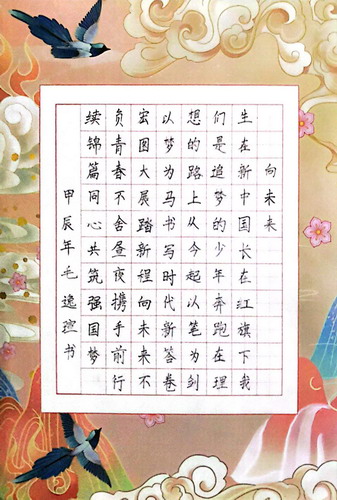 向未来
生在新中国长在江旗下我
们是追梦的少年奔跑在理
想的路上从今起以笔为剑
以梦为马书写时代新答卷
宏图大展踏新程向未来不
负青春不舍昼夜携手前行
续锦篇同心共筑强国梦
甲辰年毛逸书